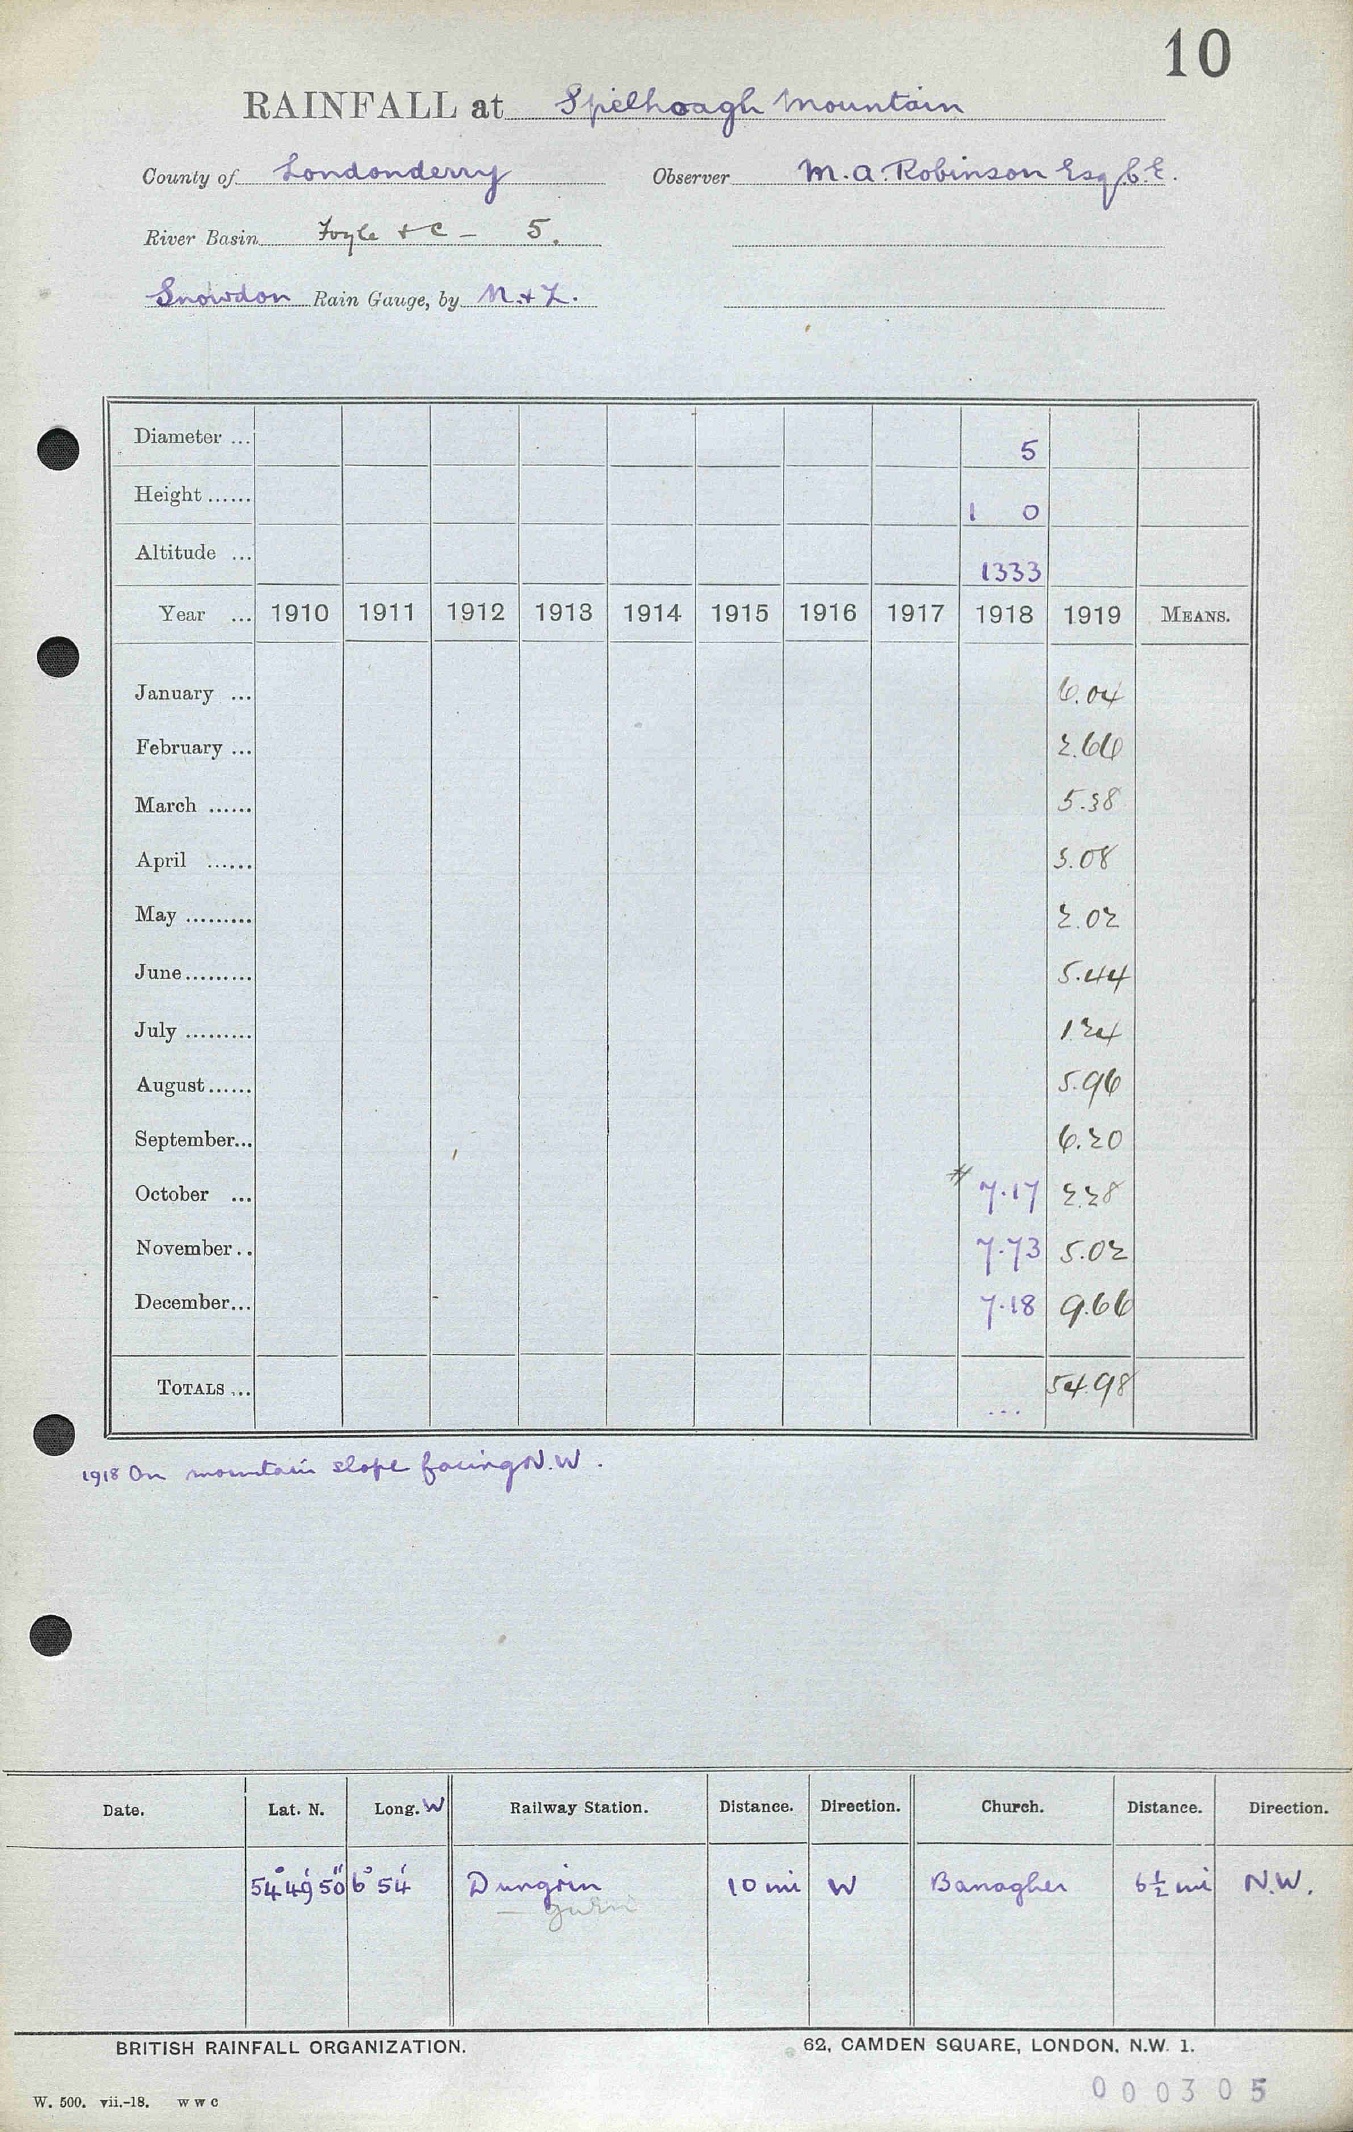 10
RAINFALL at Spelhoagh Mountain
County of Londonderry Observer M.A. Robinson Esq C.E.
River Basin Foyle + C – 5.
Snowdon Rain Gauge, by N. + Z.
Diameter ... 5
Height ...... 1 0
Altitude ... 1333
Year ... 1910 1911 1912 1913 1914 1915 1916 1917 1918 1919 MEANS.
January ... 6.04
February ... 2.66
March ...... 5.38
April ...... 3.08
May ......... 2.02
June ......... 5.44
July ......... 1.24
August ...... 5.96
September... 6.20
October ... # 7.17 2.28
November .. 7.73 5.02
December... 7.18 9.66
TOTALS ... ... 54.98
1918 On mountain slope facing N.W.
Date. Lat. N. Long. W Railway Station. Distance. Direction. Church. Distance. Direction.
54° 49' 50" 6° 54' Dungrin 10 mi W Banagher 6½ mi N.W.
BRITISH RAINFALL ORGANIZATION. 62, CAMDEN SQUARE, LONDON, N.W. 1.
000305
W. 500. vii.-18. W W C